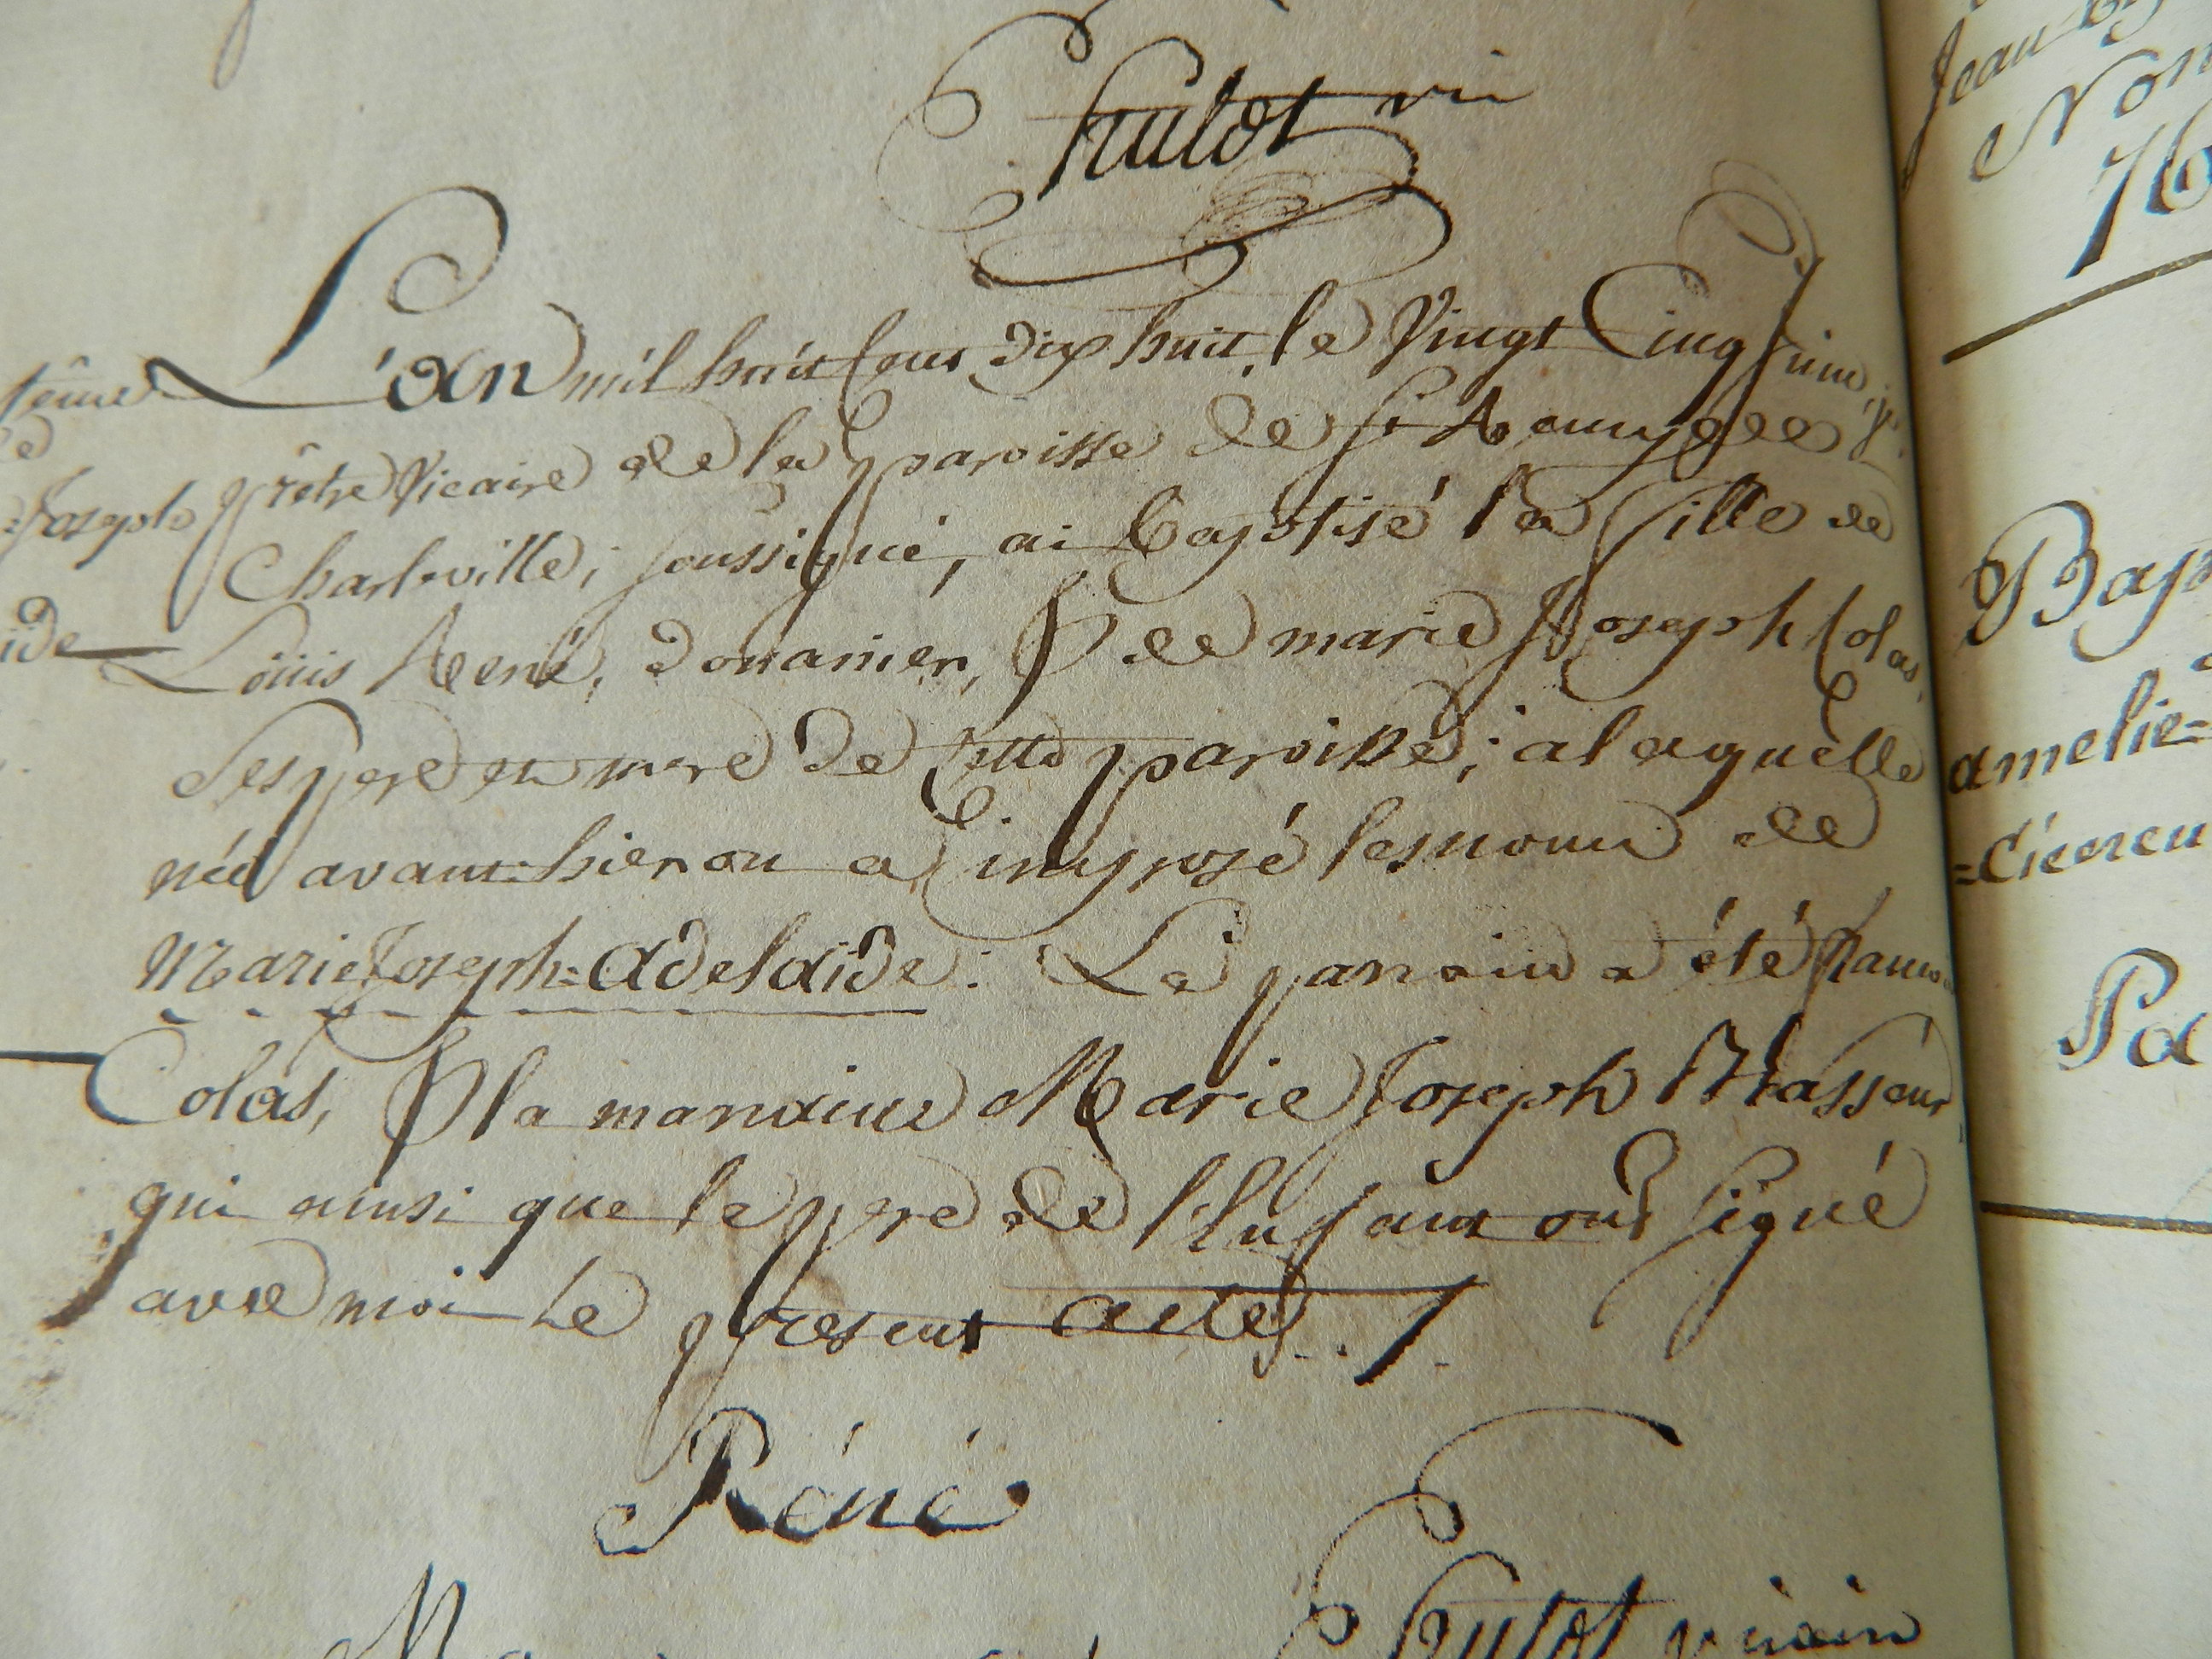 hulot vic
L'an mil huit Cent dix huit, le Vingt Cinq juin, je
prêtre Vicaire de la paroisse de St Remy de
Charleville, soussigné, ai Baptisé la fille de
Louis René, douanier, & de marie Joseph Colas,
Ses pere et mere de Cette paroisse; a laquelle
née avant-hier on a imposé les noms de
Marie Joseph=Adelaïde. Le parrain a été
Colas, & la marraine Marie Joseph
qui ainsi que le pere de l'Enfant ont signé
avec moi le présent acte ../.
Réné
hulot vicair
tême
Joseph
ide
Jean
Nom
76
Bap
amelie=
Pa